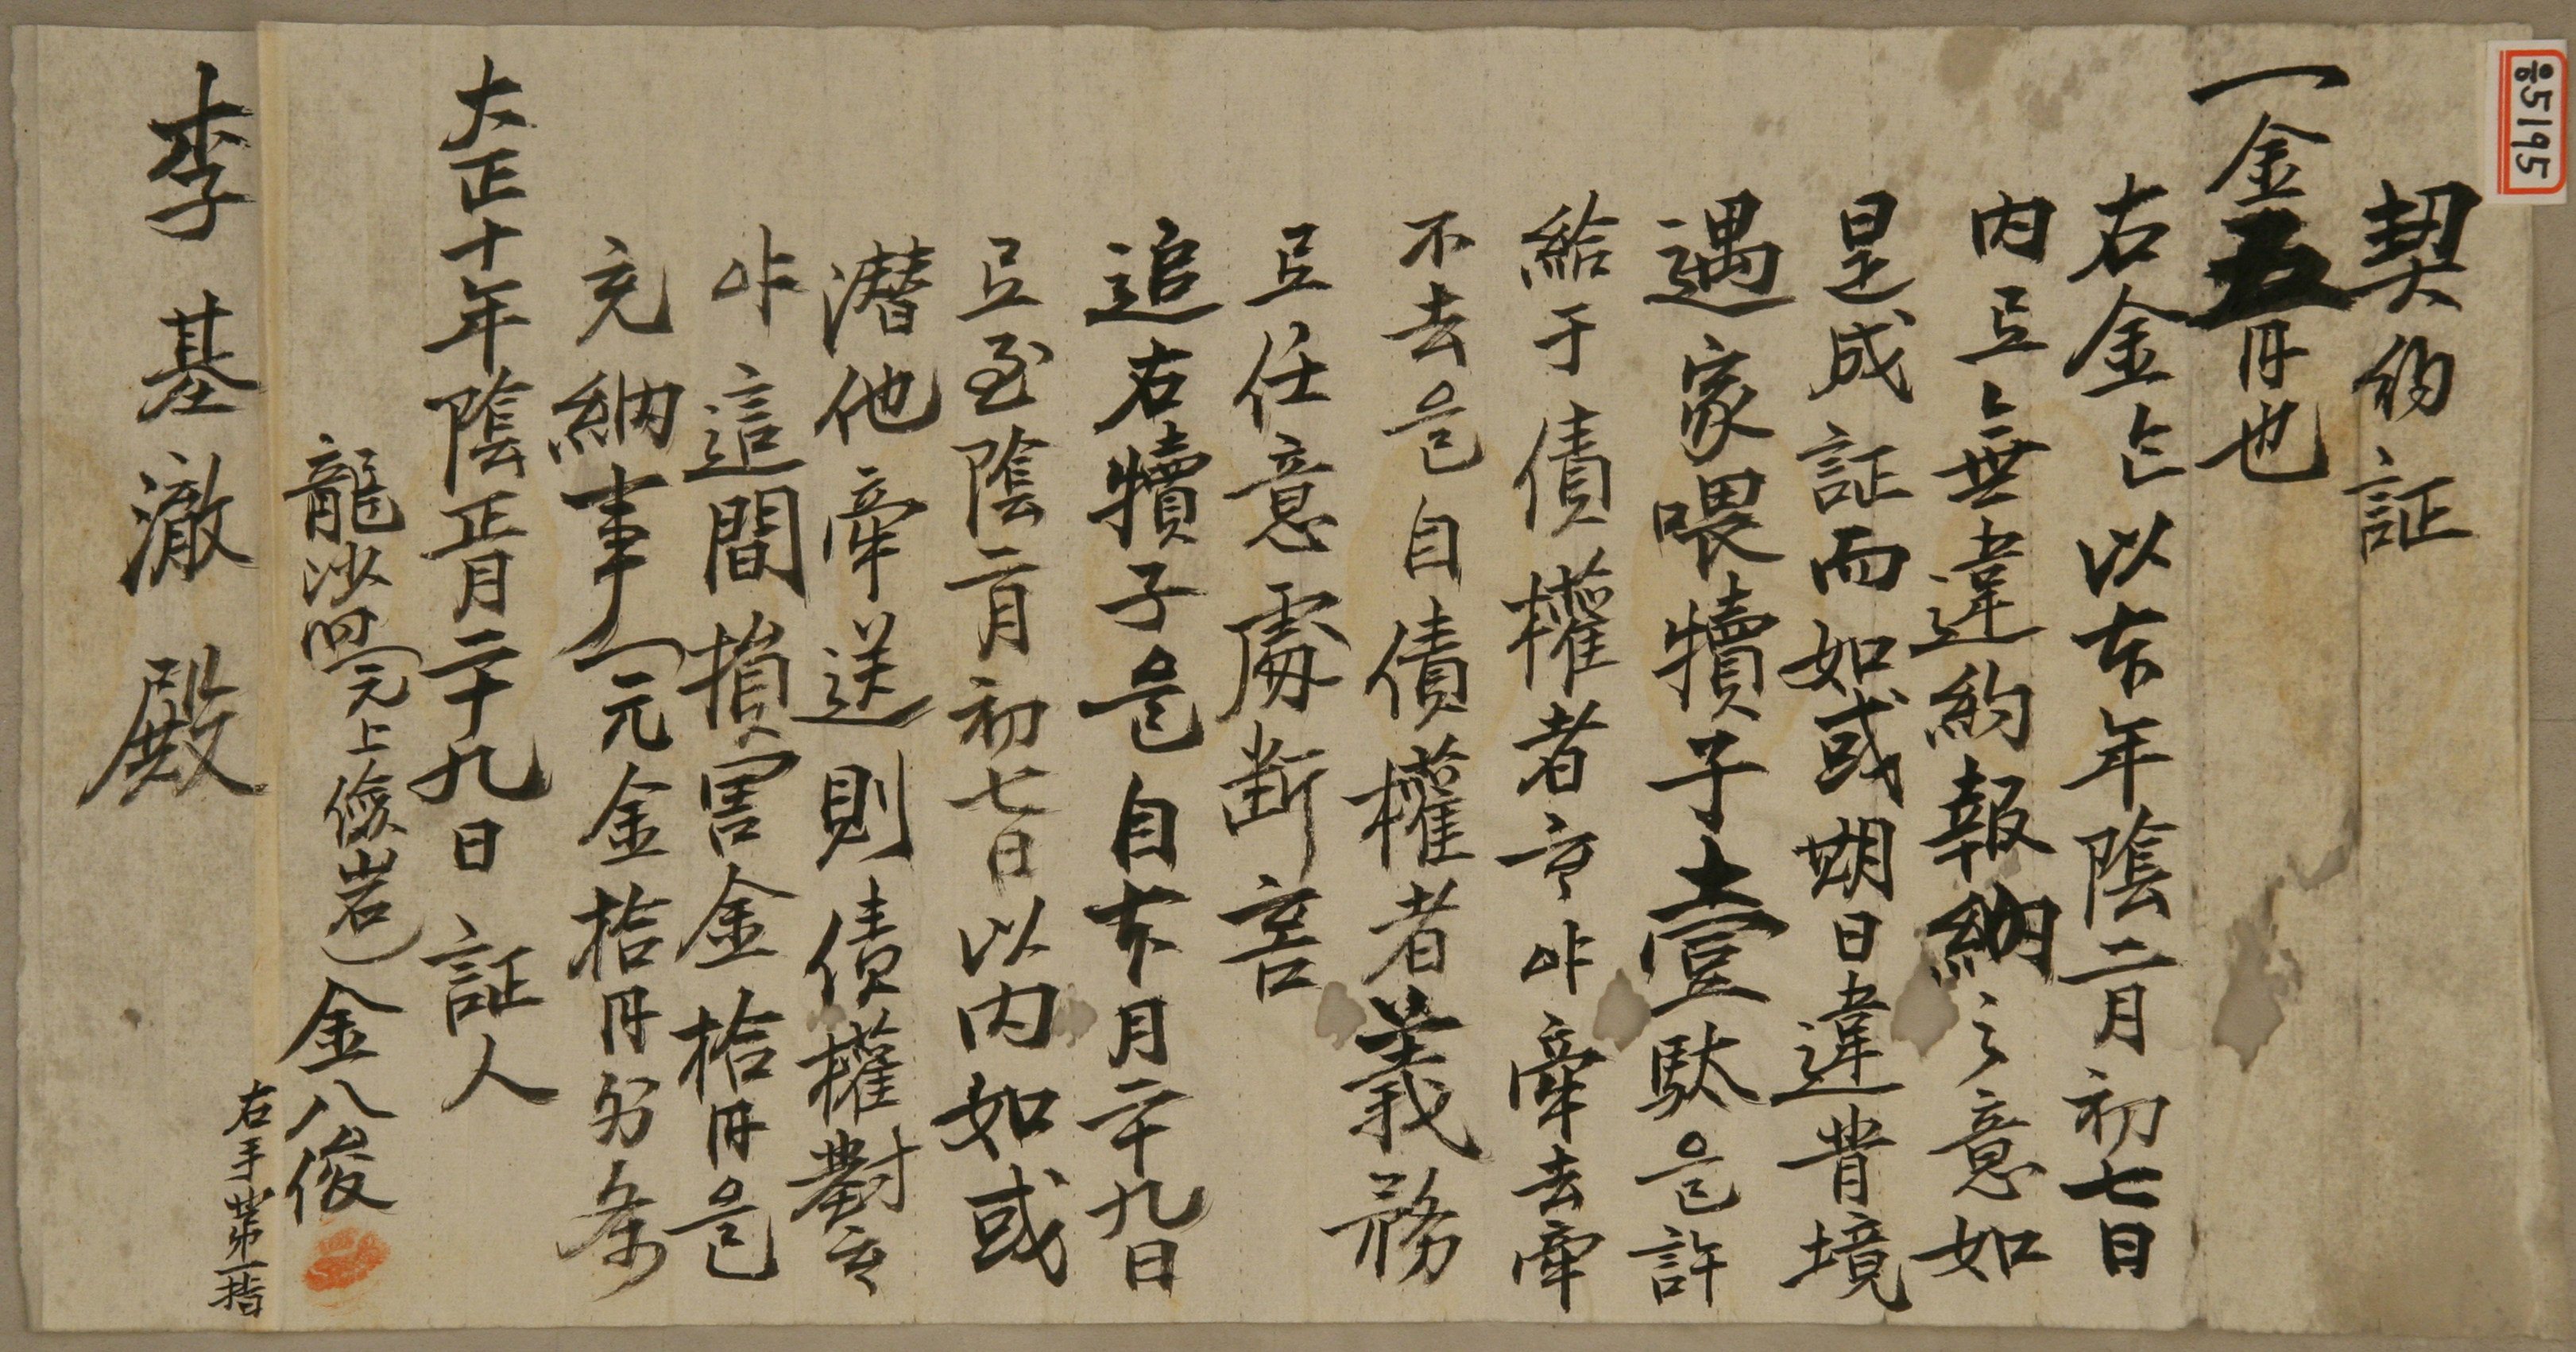 契約証
一金五円也
右金은以本年陰二月初七日
内로無違約報納之意如
是成証而如或期日違背境
遇家喂犢子壹駄을許
給于債權者하야牽去牽
不去을自債權者義務
로任意處斷
追右犢子을自本月二十九日
로至陰二月初七日以内如或
潜他牽送則債權對
야這間損害金拾円을
充納事(元金拾円
大正十年陰正月二十九日 証人
龍沙四(元上儉岩)金八俊
右手第一指
李基澈殿
음55195